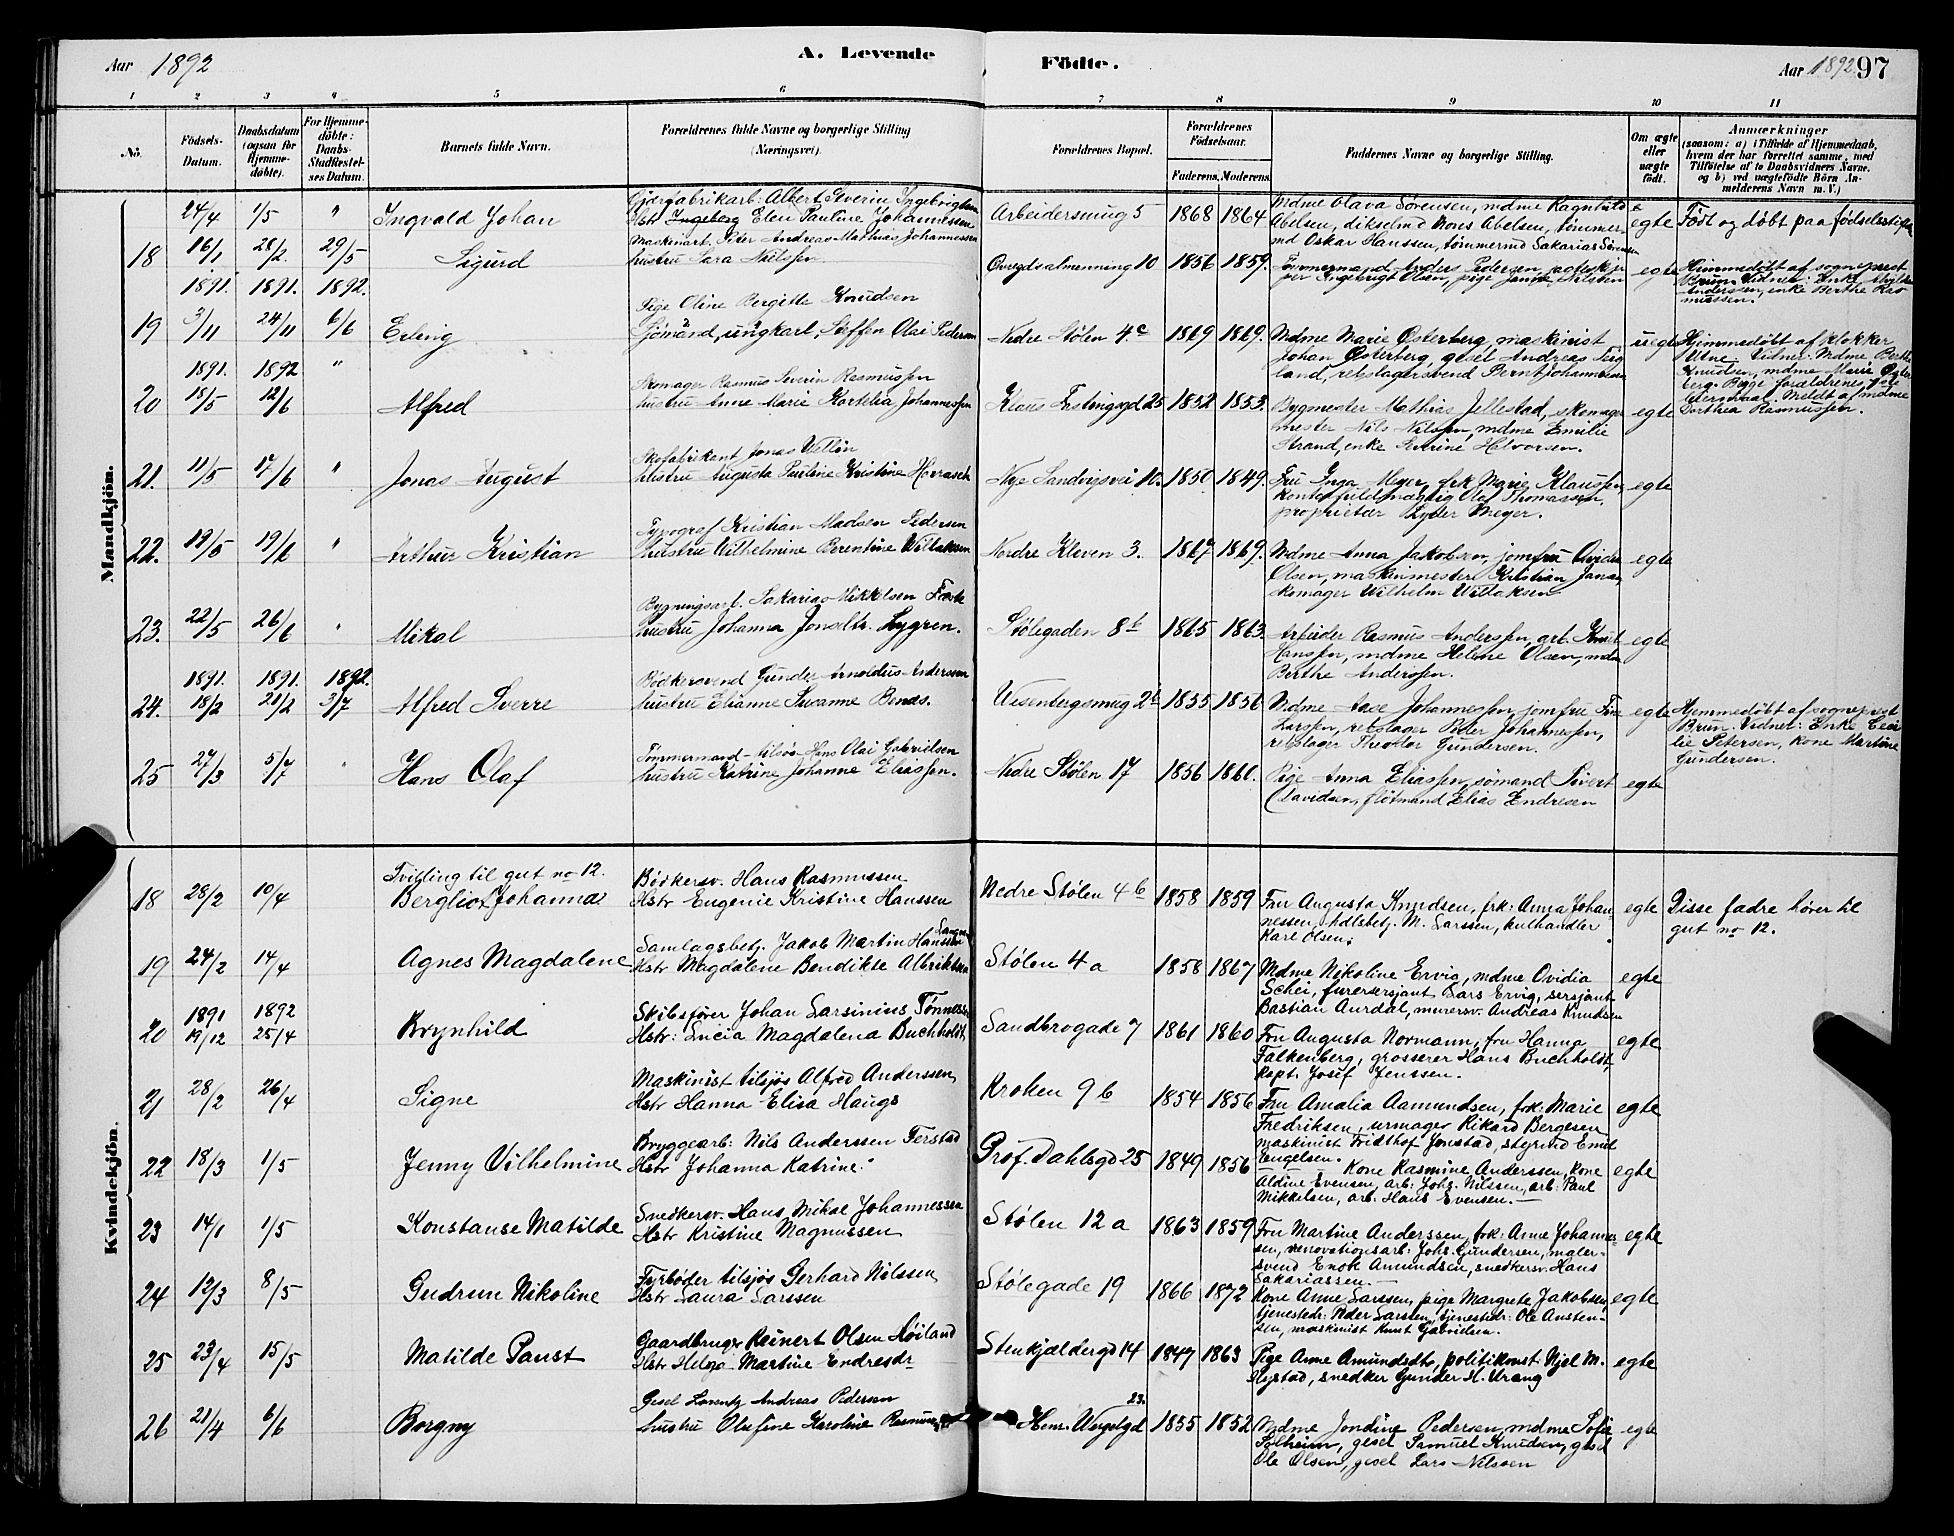 Aar 1892
A. Levende Födte.
Aar 1892 97
1 2 3 4 5 6 7 8 9 10 11
No.
Födsels-Datum.
Daabsdatum (ogsaa for Hjemme-döbte).
For Hjemme-döbte: Daabs-Stadfæstel-ses Datum.
Barnets fulde Navn.
Forældrenes fulde Navne og borgerlige Stilling (Næringsvei).
Forældrenes Bopæl.
Forældrenes Födselsaar.
Faderens. Moderens.
Faddernes Navne og borgerlige Stilling.
Om ægte eller uægte födt.
Anmærkninger
(saasom: a) i Tilfælde af Hjemmedaab, hvem der har forrettet samme, med Tilföielse af to Daabsvidners Navne, og b) ved uægtefödte Börn An-melderens Navn m. V.)
Mandkjön.
24/4 1/5 " Ingvald Johan
Albert Severin Ingebrigtsen
Hstr Ingeborg Elen Pauline Johannessen
Arbeidersmug 5 1868 1864
Mdme Olava Sörensen, mdme Ragnhild
Abelsen, Mons Abelsen, tømmer-
md Oskar Hanssen, tømmermd Sakarias Sörensen
egte Født og døbt paa fødselsstiftelsen
18 16/1 28/2 29/5 Sigurd
Maskinarb. Peter Andreas Mathias Johannessen
hustru Sara Nilssen
Øvregdsalmenning 10 1856 1859.
Tømmermand Anders Pedersen,
Ingebrigt Olsen, pige
egte
Hjemmedøbt af sogneprest
Brun. Vidner: Enke
Anderssen, enke Berthe Ras
mussen.
1891. 1891. 1892.
19 3/11 24/11 6/6 Erling
Pige Oline Bergitte Knudsen
Sjömand, ungkarl, Steffen Olai Pedersen
Nedre Stølen 4c 1869 1869.
Mdme Marie Østerberg, maskinist
Johan Østerberg, gesel Andreas
land, rebslagersvend Bernt Johannessen
uegte
Hjemmedøbt af klokker
Utne. Vidner: Mdme Berthe
Knudsen, mdme Marie Øster
berg. Begge forældrenes 1ste
leiermaal. Meldt af mdme
Dorthea Rasmussen.
1891. 1892 "
20 18/5 12/6 Alfred
Skomager Rasmus Severin Rasmussen
hustru Anne Marie Kornelia Johannessen
Klaus 25 1852 1853.
Bygmester Mathias Jellestad, skomager
mester Nils Nilssen, mdme Emilie
Strand, enke Severine Halvorsen.
egte
21. 11/5 17/6 " Jonas August
Skofabrikant Jonas
hustru Augusta Pauline Kristine
Nye Sandvigsvei 10. 1850 1849.
Fru Inga Meyer, frk Marie Klaussen,
Olaf Thomassen,
proprietær Ryder Meyer.
egte
22. 19/5 19/6 " Arthur Kristian
Typograf Kristian Madsen Pedersen
hustru Wilhelmine Berentine Willaksen
Nordre Kleven 3. 1867 1869.
Mdme Anna Jakobsen, jomfru Ovidia
Olsen, maskinmester Kristian
skomager Wilhelm Willaksen
egte
23. 22/5 26/6 " Mikal
Bygningsarb. Sakarias Mikkelsen
hustru Johanna Lygren.
Stølegaden 8b 1865 1863.
Arbeider Rasmus Anderssen, arb. Knut
Hanssen, mdme Helene Olsen, mdm
Berthe Anderssen.
egte
1891. 1891. 1892.
24. 18/2 21/2 3/7 Alfred Sverre
Bødkersvend Gunder Arnoldus Anderssen
hustru Elianne Susanne
Wesenbergsmug 2b 1855 1856
Mdme Aase Johannessen, jomfru
Larssen, rebslager Peder Johannessen,
rebslager Theodor Gundersen.
egte
Hjemmedøbt af sogneprest
Brun. Vidner: Enke Ceci
lie Petersen, kone Martine
Gundersen.
25 27/3 5/7 Hans Olaf
Tømmermand tilsøs Hans Olai Gabrielsen
hustru Katrine Johanne Eliassen.
Nedre Stølen 17 1856 1860.
Pige Anna Eliassen, sømand Sivert
Davidsen, fløtmand Elias Endresen
egte
Kvindekjön.
18 28/2 10/4
Tvilling til gut no 12.
Bergliot Johanna
Bødkersv. Hans Rasmussen
Hstr Eugenie Kristine Hanssen
Nedre Stølen 4b 1858 1859
Fru Augusta Knudsen, frk: Anna Johan
nessen, M. Larssen, kulhandler
Karl Olsen.
egte
Disse fadre hører til
gut no 12.
19 24/2 14/4 Agnes Magdalene
Samlagsbetj. Jakob Martin Hanssen
Hstr Magdalene Bendikte Albriktsen
Stølen 4a 1858 1867
Mdme Nikoline Ervig, mdme Ovidia
Schei, furersersjant Lars Ervig, sersjant
Bastian Aurdal, murersv. Andreas Knudsen
egte
1891 1892
20 19/12 25/4 Brynhild
Skibsfører Johan Larsinius Tønnessen
Hstr: Lucia Magdalena Buchholdt
Sandbrogade 7 1861 1860
Fru Augusta Normann, fru Hanna
Falkenberg, grosserer Hans Buchholdt,
kapt. Josef Jenssen.
egte
21 28/2 26/4 Signe
Maskinist tilsjøs Alfred Anderssen
Hstr Hanna Elisa Haugs
Kroken 9b 1854 1856
Fru Amalia Aamundsen, frk: Marie
Fredriksen, urmager Rikard Bergesen
maskinist Fridthof Jonstad, styrmd Emil
Engelsen.
egte
22 18/3 1/5 Jenny Vilhelmine
Bryggearb: Nils Anderssen Ferstad
Hstr Johanna Katrine
Prof. Dahlsgd 25 1849 1856
Kone Rasmine Anderssen, kone
Aldine Evensen, arb: Johs. Nilssen, arb: Paul
Mikkelsen, arb: Hans Evensen.
egte
23 14/1 1/5 Konstanse Matilde
Snedkersv. Hans Mikal Johannessen
Hstr Kristine Magnussen
Stølen 12a 1863 1859
Fru Martine Anderssen, frk: Anne Johannes-
sen, renovationsarb: Johs. Gundersen, maler-
svend Enok Amundsen, snedkersv: Hans
Sakariassen.
egte
24 12/3 8/5 Gudrun Nikoline
Fyrbøder tilsjøs Gerhard Nilssen
Hstr Laura Larssen
Stølegade 19 1866 1872
Kone Anne Larssen, pige Margrete Jakobsen,
tjenestedr: Peder Larssen, tjenestedr: Ole Austen-
sen, maskinist Knut Gabrielsen.
egte
25 23/4 15/5 Matilde Paust
Gaardbruger Reinert Olsen Høiland
Hstr Helga Martine Endresdr
Stenkjældergd 14 1847 1863
Pige Anne Amundsdtr, politikonst: Kjel M.
Hystad, snedker Gunder H. Vrang
egte
26 21/4 6/6 Borgny
Gesel Lorentz Andreas Pedersen
hustru Olufine Karoline
Henr. Wergelgd 23. 1855 1852
Mdme Jondine Pedersen, mdme Sofie
Solheim, gesel Samuel Knudsen, gesel
Ole Olsen, gesel Lars Nilssen
egte